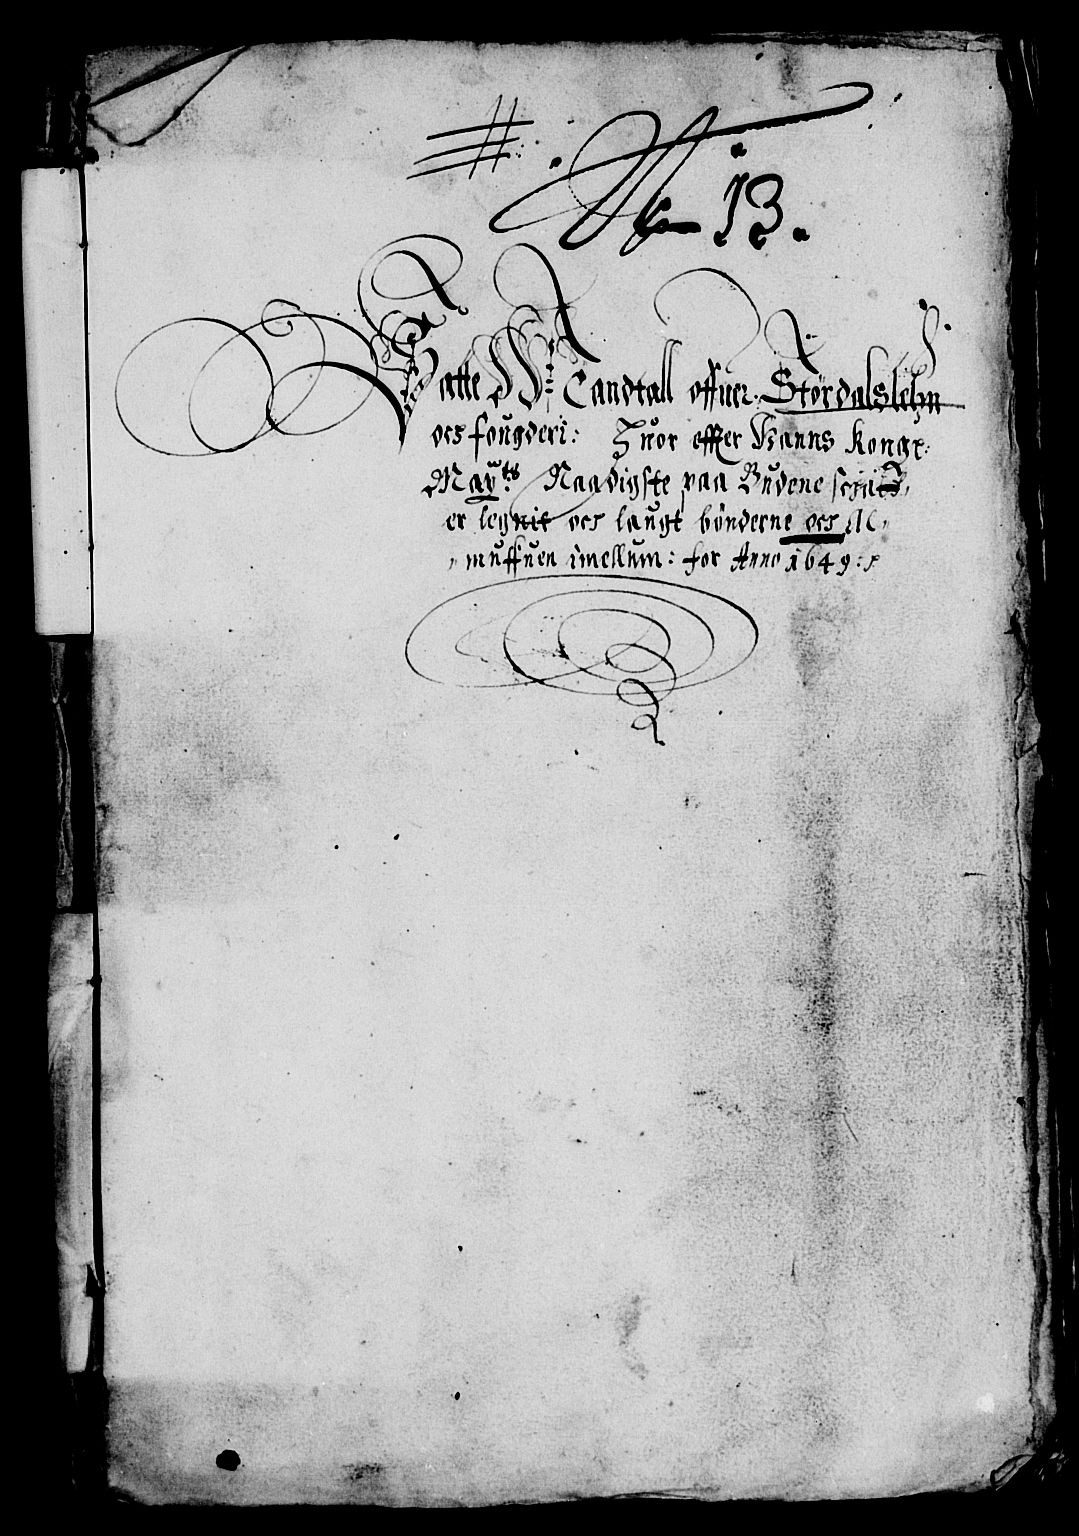 No 13.
Matte Wis Landtall offuer Stördalslehn
ocs fougderi: Huor effter Hanns Kongl:
Mayts Naadigste paa Budene schatt
er legnit ocs laugt bönderne ocs Al-
muffuen imellum: for Anno 1649: